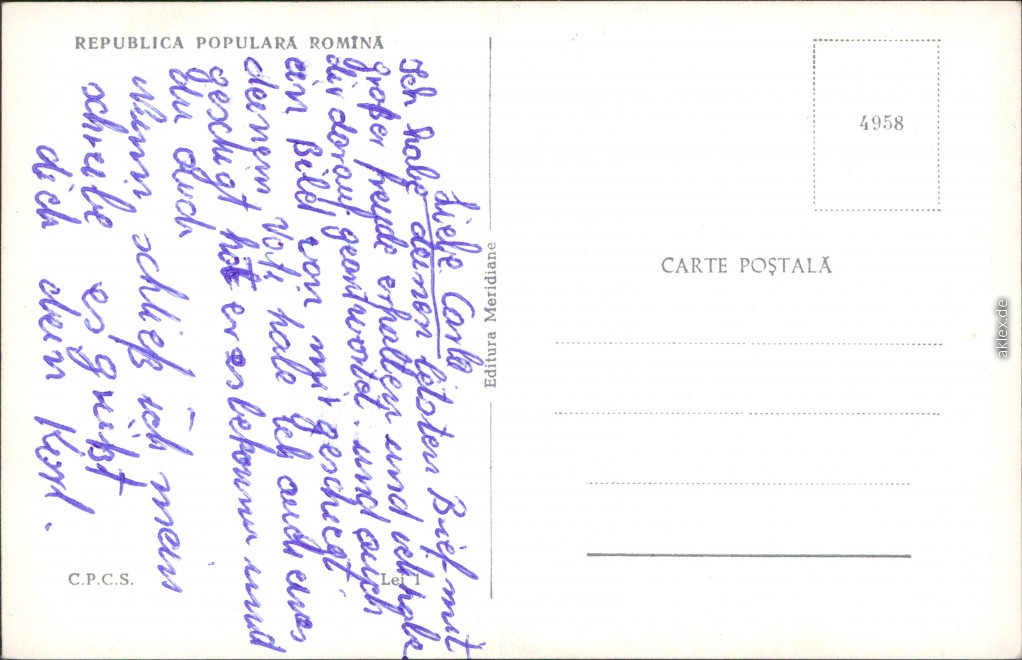 REPUBLICA POPULARĂ ROMÎNĂ
Liebe Carla
Ich habe deinen letzten Brief mit
großer freude erhalten und ich habe
dir darauf geantwortet. und auch
ein Bild von mir geschickt
deinem Vati habe Ich auch eines
geschigt hat er es bekommen und
du auch
Nunn schließ ich mein
schreibe es grüßt
dich dein Karl.
C.P.C.S.
Lei 1
Editura Meridiane
4958
CARTE POȘTALĂ
aklex.de